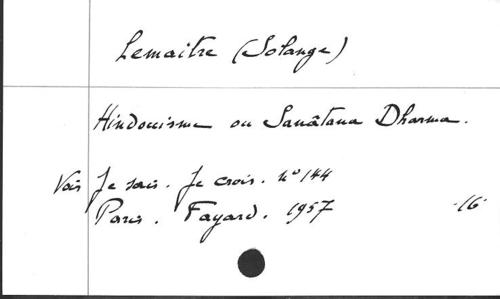 Lemaitre (Solange)
Hindouisme ou Sanâtana Dharma.
Voir Je sais. Je crois. n° 144
Paris. Fayard. 1957 -16-